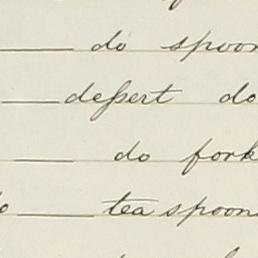 do spoon
dessert do
do fork
tea spoons